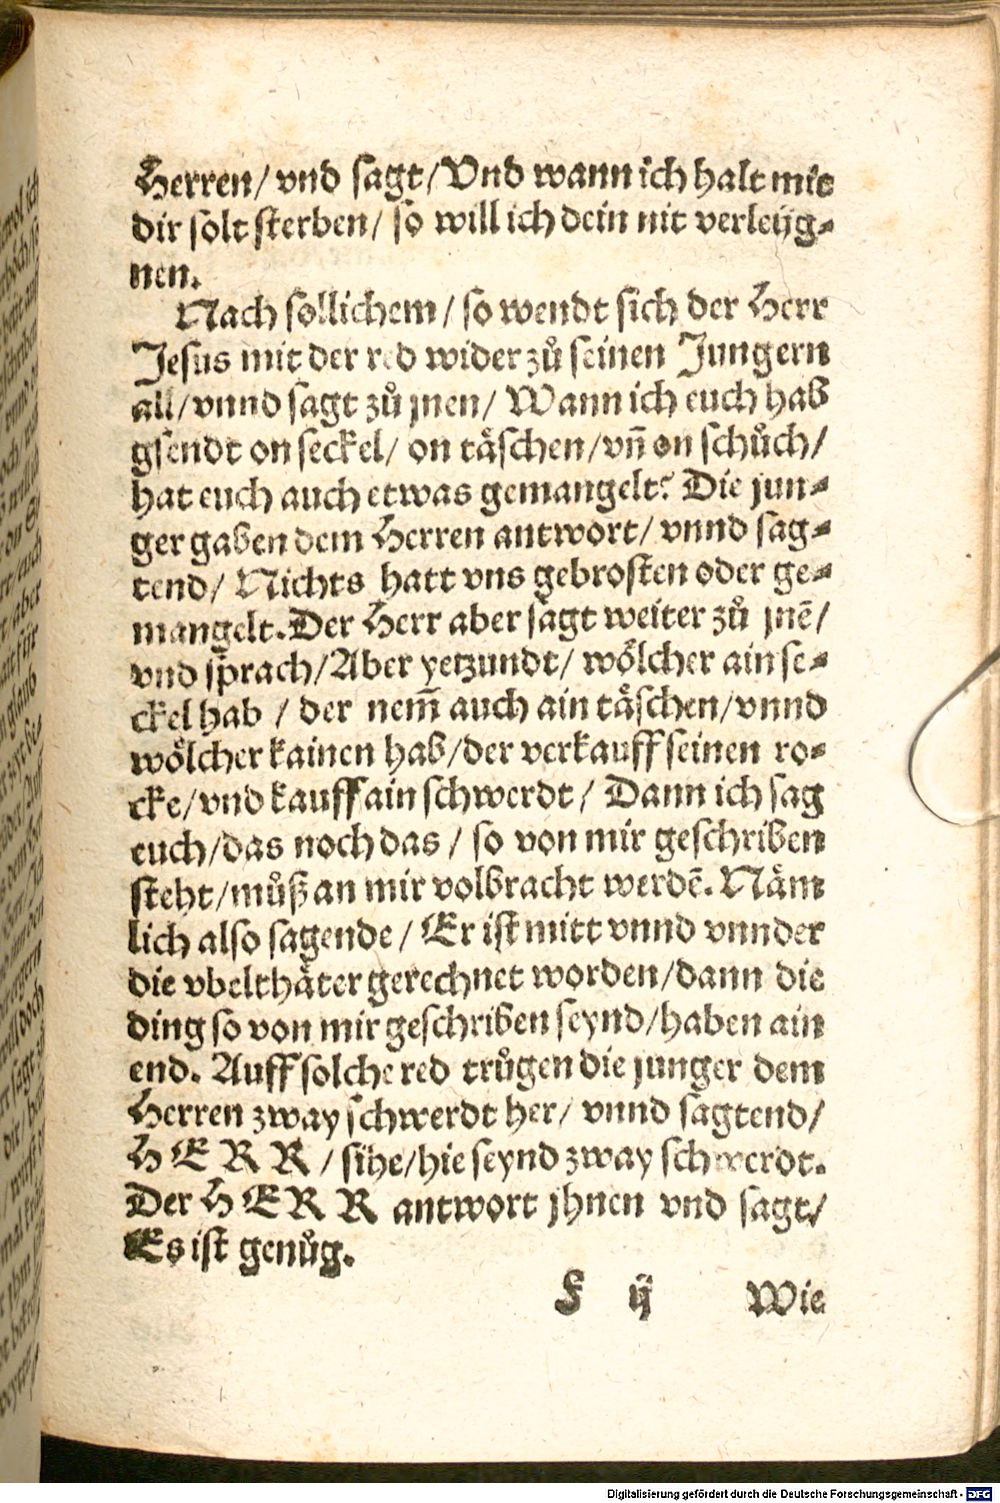 Herren/ vnd sagt/ Vnd wann ich halt mit
dir solt sterben/ so will ich dein nit verleüg⸗
nen.
Nach sollichem/ so wendt sich der Herr
Jesus mit der red wider zů seinen Jungern
all/ vnnd sagt zů jnen/ Wann ich euch hab
gsendt on seckel/ on täschen/ vñ on schůch/
hat euch auch etwas gemangelt? Die jun⸗
ger gaben dem Herren antwort/ vnnd sag⸗
tend/ Nichts hatt vns gebrosten oder ge⸗
mangelt. Der Herr aber sagt weiter zů jnē/
vnd sprach/ Aber yetzundt/ wölcher ain se⸗
ckel hab / der nem̄ auch ain täschen/ vnnd
wölcher kainen hab/ der verkauff seinen ro⸗
cke/ vnd kauff ain schwerdt/ Dann ich sag
euch/ das noch das / so von mir geschriben
steht/ můß an mir volbracht werdē. Näm
lich also sagende/ Er ist mitt vnnd vnnder
die vbelthäter gerechnet worden/ dann die
ding so von mir geschriben seynd/ haben ain
end. Auff solche red trůgen die junger dem
Herren zway schwerdt her/ vnnd sagtend/
HERR / sihe/ hie seynd zway schwerdt.
Der HERR antwort jhnen vnd sagt/
Es ist genůg.
F ij Wie
Digitalisierung gefördert durch die Deutsche Forschungsgemeinschaft - DFG